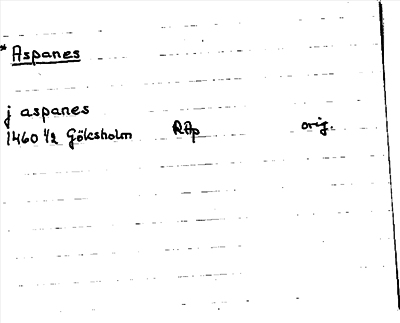 * Aspanes
j aspanes
1460 1/2 Göksholm RAp orig.